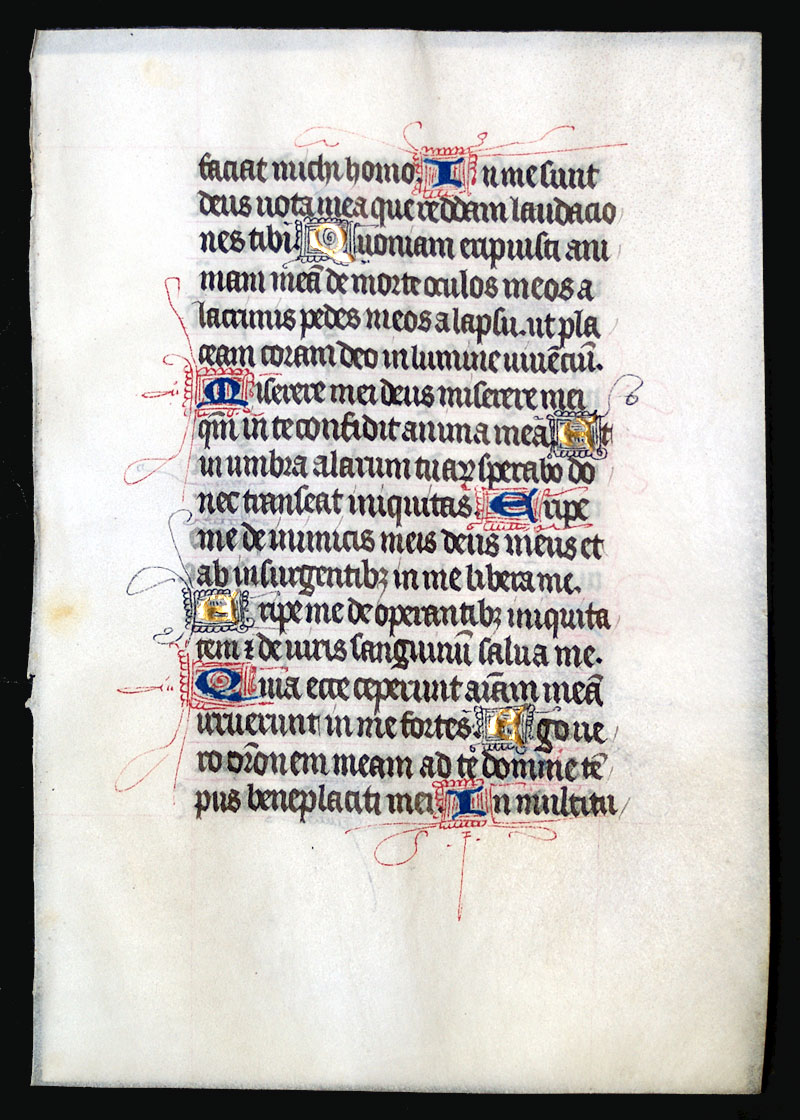 faciat michi homo. In me sunt
deus uota mea que reddam laudacio
nes tibi. Quoniam eripuisti ani
mam meā de morte oculos meos a
lacrimis pedes meos a lapsu. ut pla
ceam coram deo in lumine uiuēciū.
Miserere mei deus miserere mei
qm̄ in te confidit anima mea. Et
in umbra alarum tuaꝝ sperabo do
nec transeat iniquitas. Eripe
me de inimicis meis deus meus et
ab insurgentibꝫ in me libera me.
Eripe me de operantibꝫ iniquita
tem ⁊ de uiris sanguinū salua me.
Quia ecce ceperunt aīam meā
irruerunt in me fortes. Ego ue
ro or̄onem meam ad te domine tē
pus beneplaciti mei. In multitu